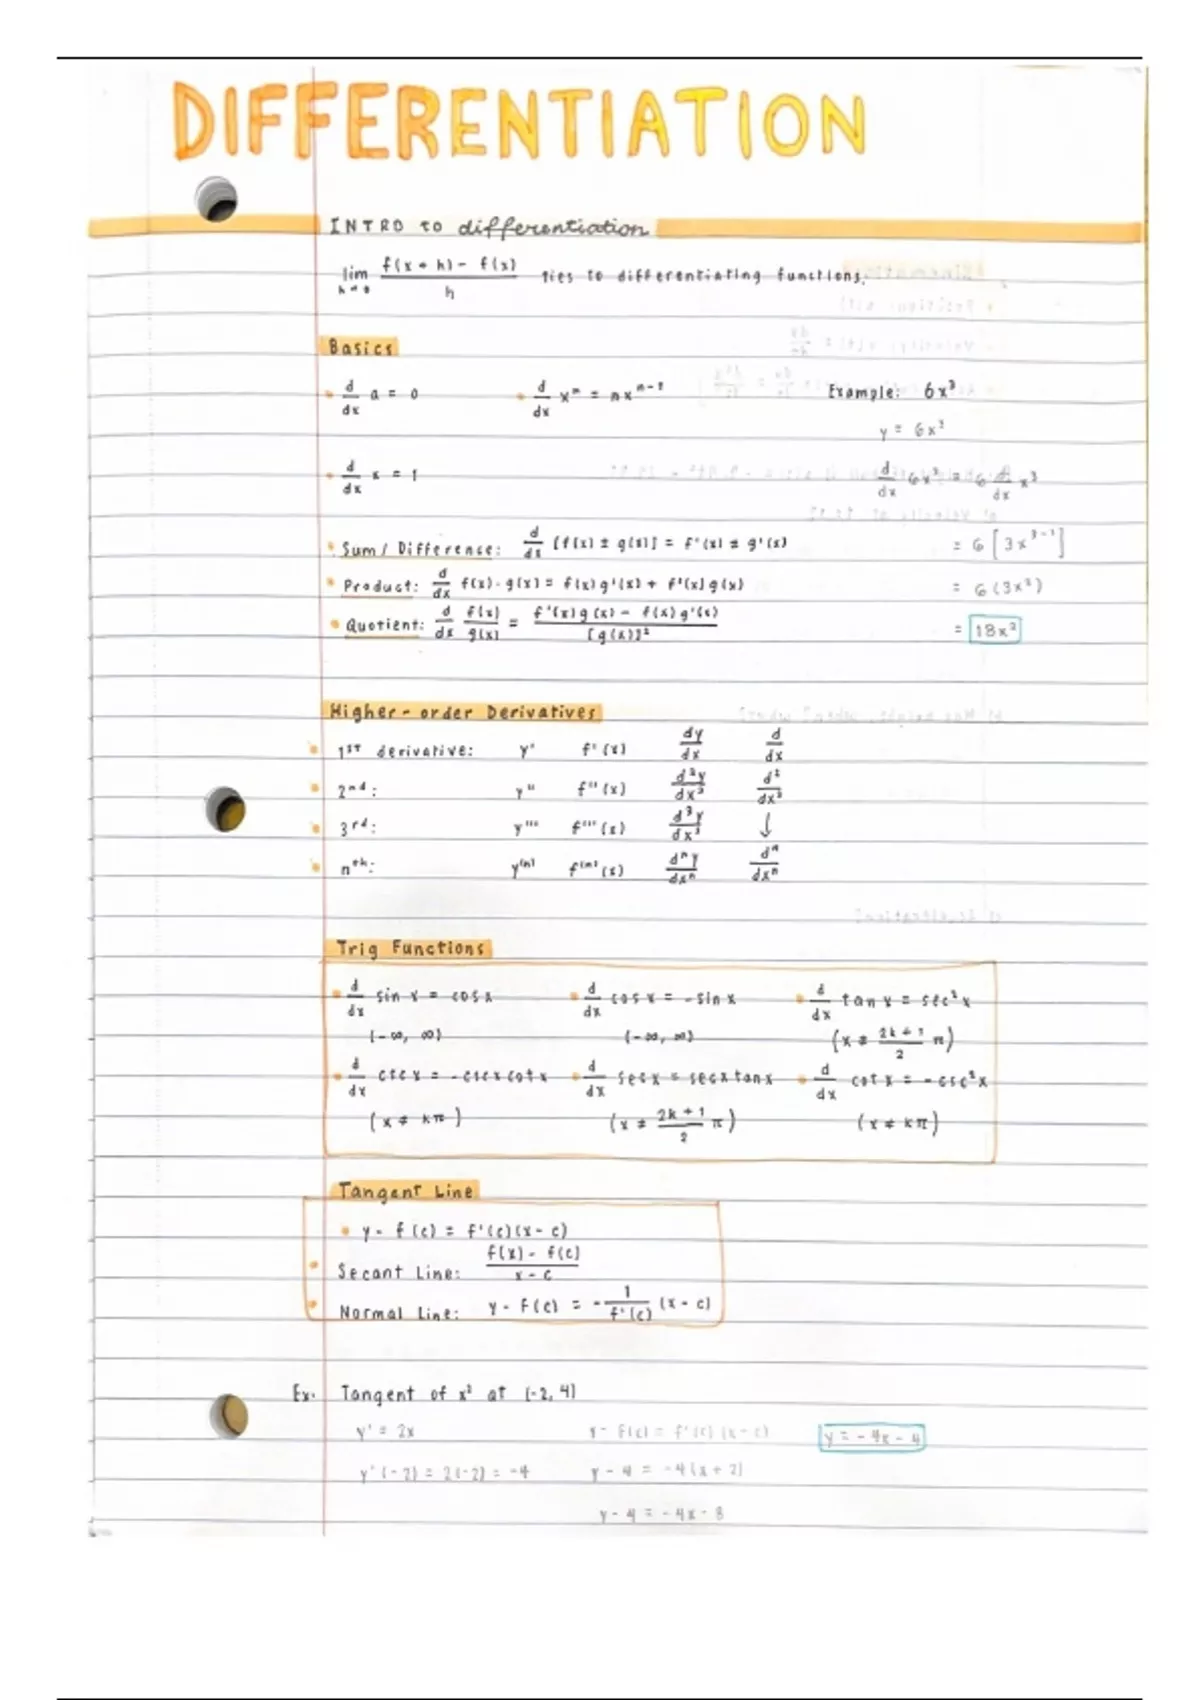 DIFFERENTIATION
INTRO to differentiation
lim h→0 f(x + h) - f(x) / h ties to differentiating functions.
Basics
• d/dx a = 0 • d/dx xⁿ = nxⁿ⁻¹ Example: 6x³
y = 6x³
• d/dx x = 1 d/dx 6x³ = 6 d/dx x³
• Sum / Difference: d/dx [f(x) ± g(x)] = f'(x) ± g'(x) = 6[3x³⁻¹]
• Product: d/dx f(x) · g(x) = f(x)g'(x) + f'(x)g(x) = 6(3x²)
• Quotient: d/dx f(x)/g(x) = f'(x)g(x) - f(x)g'(x) / [g(x)]² = 18x²
Higher-order Derivatives
• 1ST derivative: y' f'(x) dy/dx d/dx
• 2nd: y'' f''(x) d²y/dx² d²/dx²
• 3rd: y''' f'''(x) d³y/dx³ ↓
• nth: y⁽ⁿ⁾ f⁽ⁿ⁾(x) dⁿy/dxⁿ dⁿ/dxⁿ
Trig Functions
• d/dx sin x = cos x • d/dx cos x = -sin x • d/dx tan x = sec²x
(-∞, ∞) (-∞, ∞) (x ≠ 2k+1/2 π)
• d/dx csc x = -csc x cot x • d/dx sec x = sec x tan x • d/dx cot x = -csc²x
(x ≠ kπ) (x ≠ 2k+1/2 π) (x ≠ kπ)
Tangent Line
• y - f(c) = f'(c)(x - c)
• Secant Line: f(x) - f(c) / x - c
• Normal Line: y - f(c) = - 1/f'(c) (x - c)
Ex. Tangent of x² at (-2, 4)
y' = 2x y - f(c) = f'(c)(x - c) y = -4x - 4
y'(-2) = 2(-2) = -4 y - 4 = -4(x + 2)
y - 4 = -4x - 8